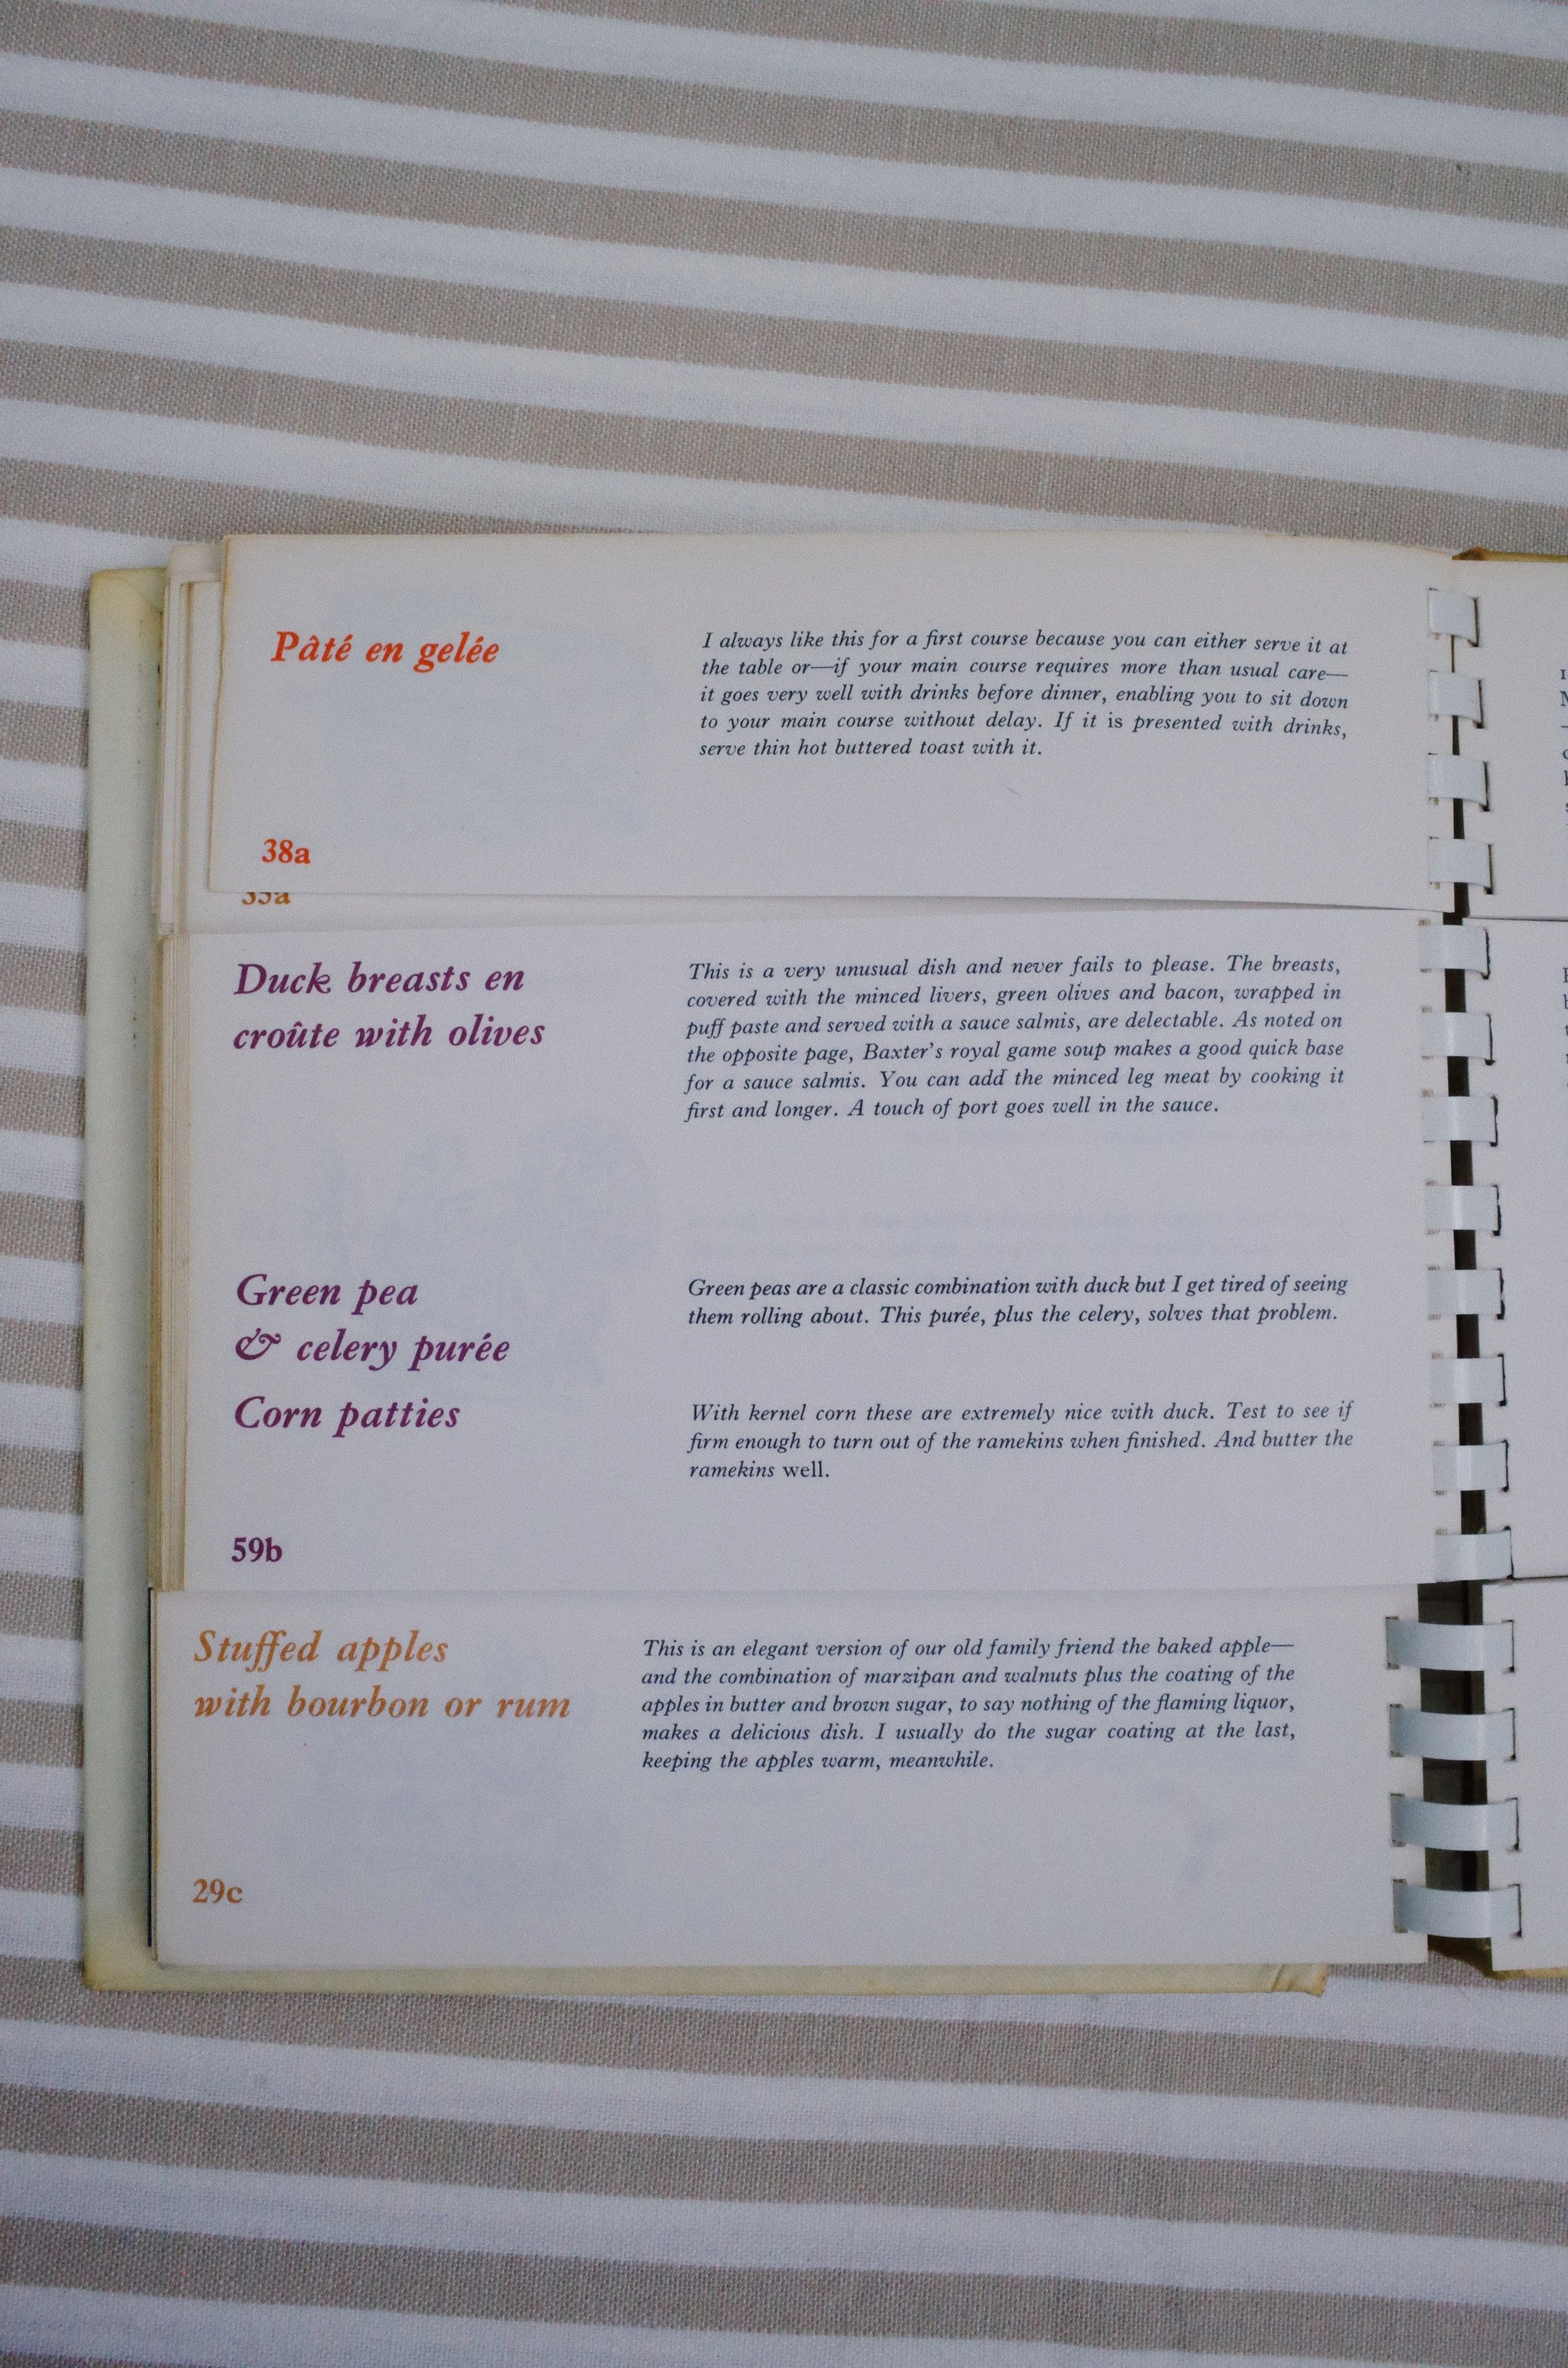 Pâté en gelée
I always like this for a first course because you can either serve it at
the table or—if your main course requires more than usual care—
it goes very well with drinks before dinner, enabling you to sit down
to your main course without delay. If it is presented with drinks,
serve thin hot buttered toast with it.
38a
Duck breasts en
croûte with olives
This is a very unusual dish and never fails to please. The breasts,
covered with the minced livers, green olives and bacon, wrapped in
puff paste and served with a sauce salmis, are delectable. As noted on
the opposite page, Baxter's royal game soup makes a good quick base
for a sauce salmis. You can add the minced leg meat by cooking it
first and longer. A touch of port goes well in the sauce.
Green pea
& celery purée
Green peas are a classic combination with duck but I get tired of seeing
them rolling about. This purée, plus the celery, solves that problem.
Corn patties
With kernel corn these are extremely nice with duck. Test to see if
firm enough to turn out of the ramekins when finished. And butter the
ramekins well.
59b
Stuffed apples
with bourbon or rum
This is an elegant version of our old family friend the baked apple—
and the combination of marzipan and walnuts plus the coating of the
apples in butter and brown sugar, to say nothing of the flaming liquor,
makes a delicious dish. I usually do the sugar coating at the last,
keeping the apples warm, meanwhile.
29c